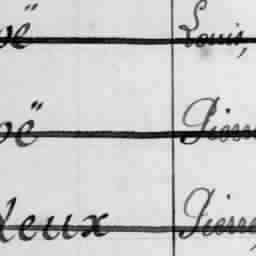 oë Louis,
oë Pierre
deux Pierre,